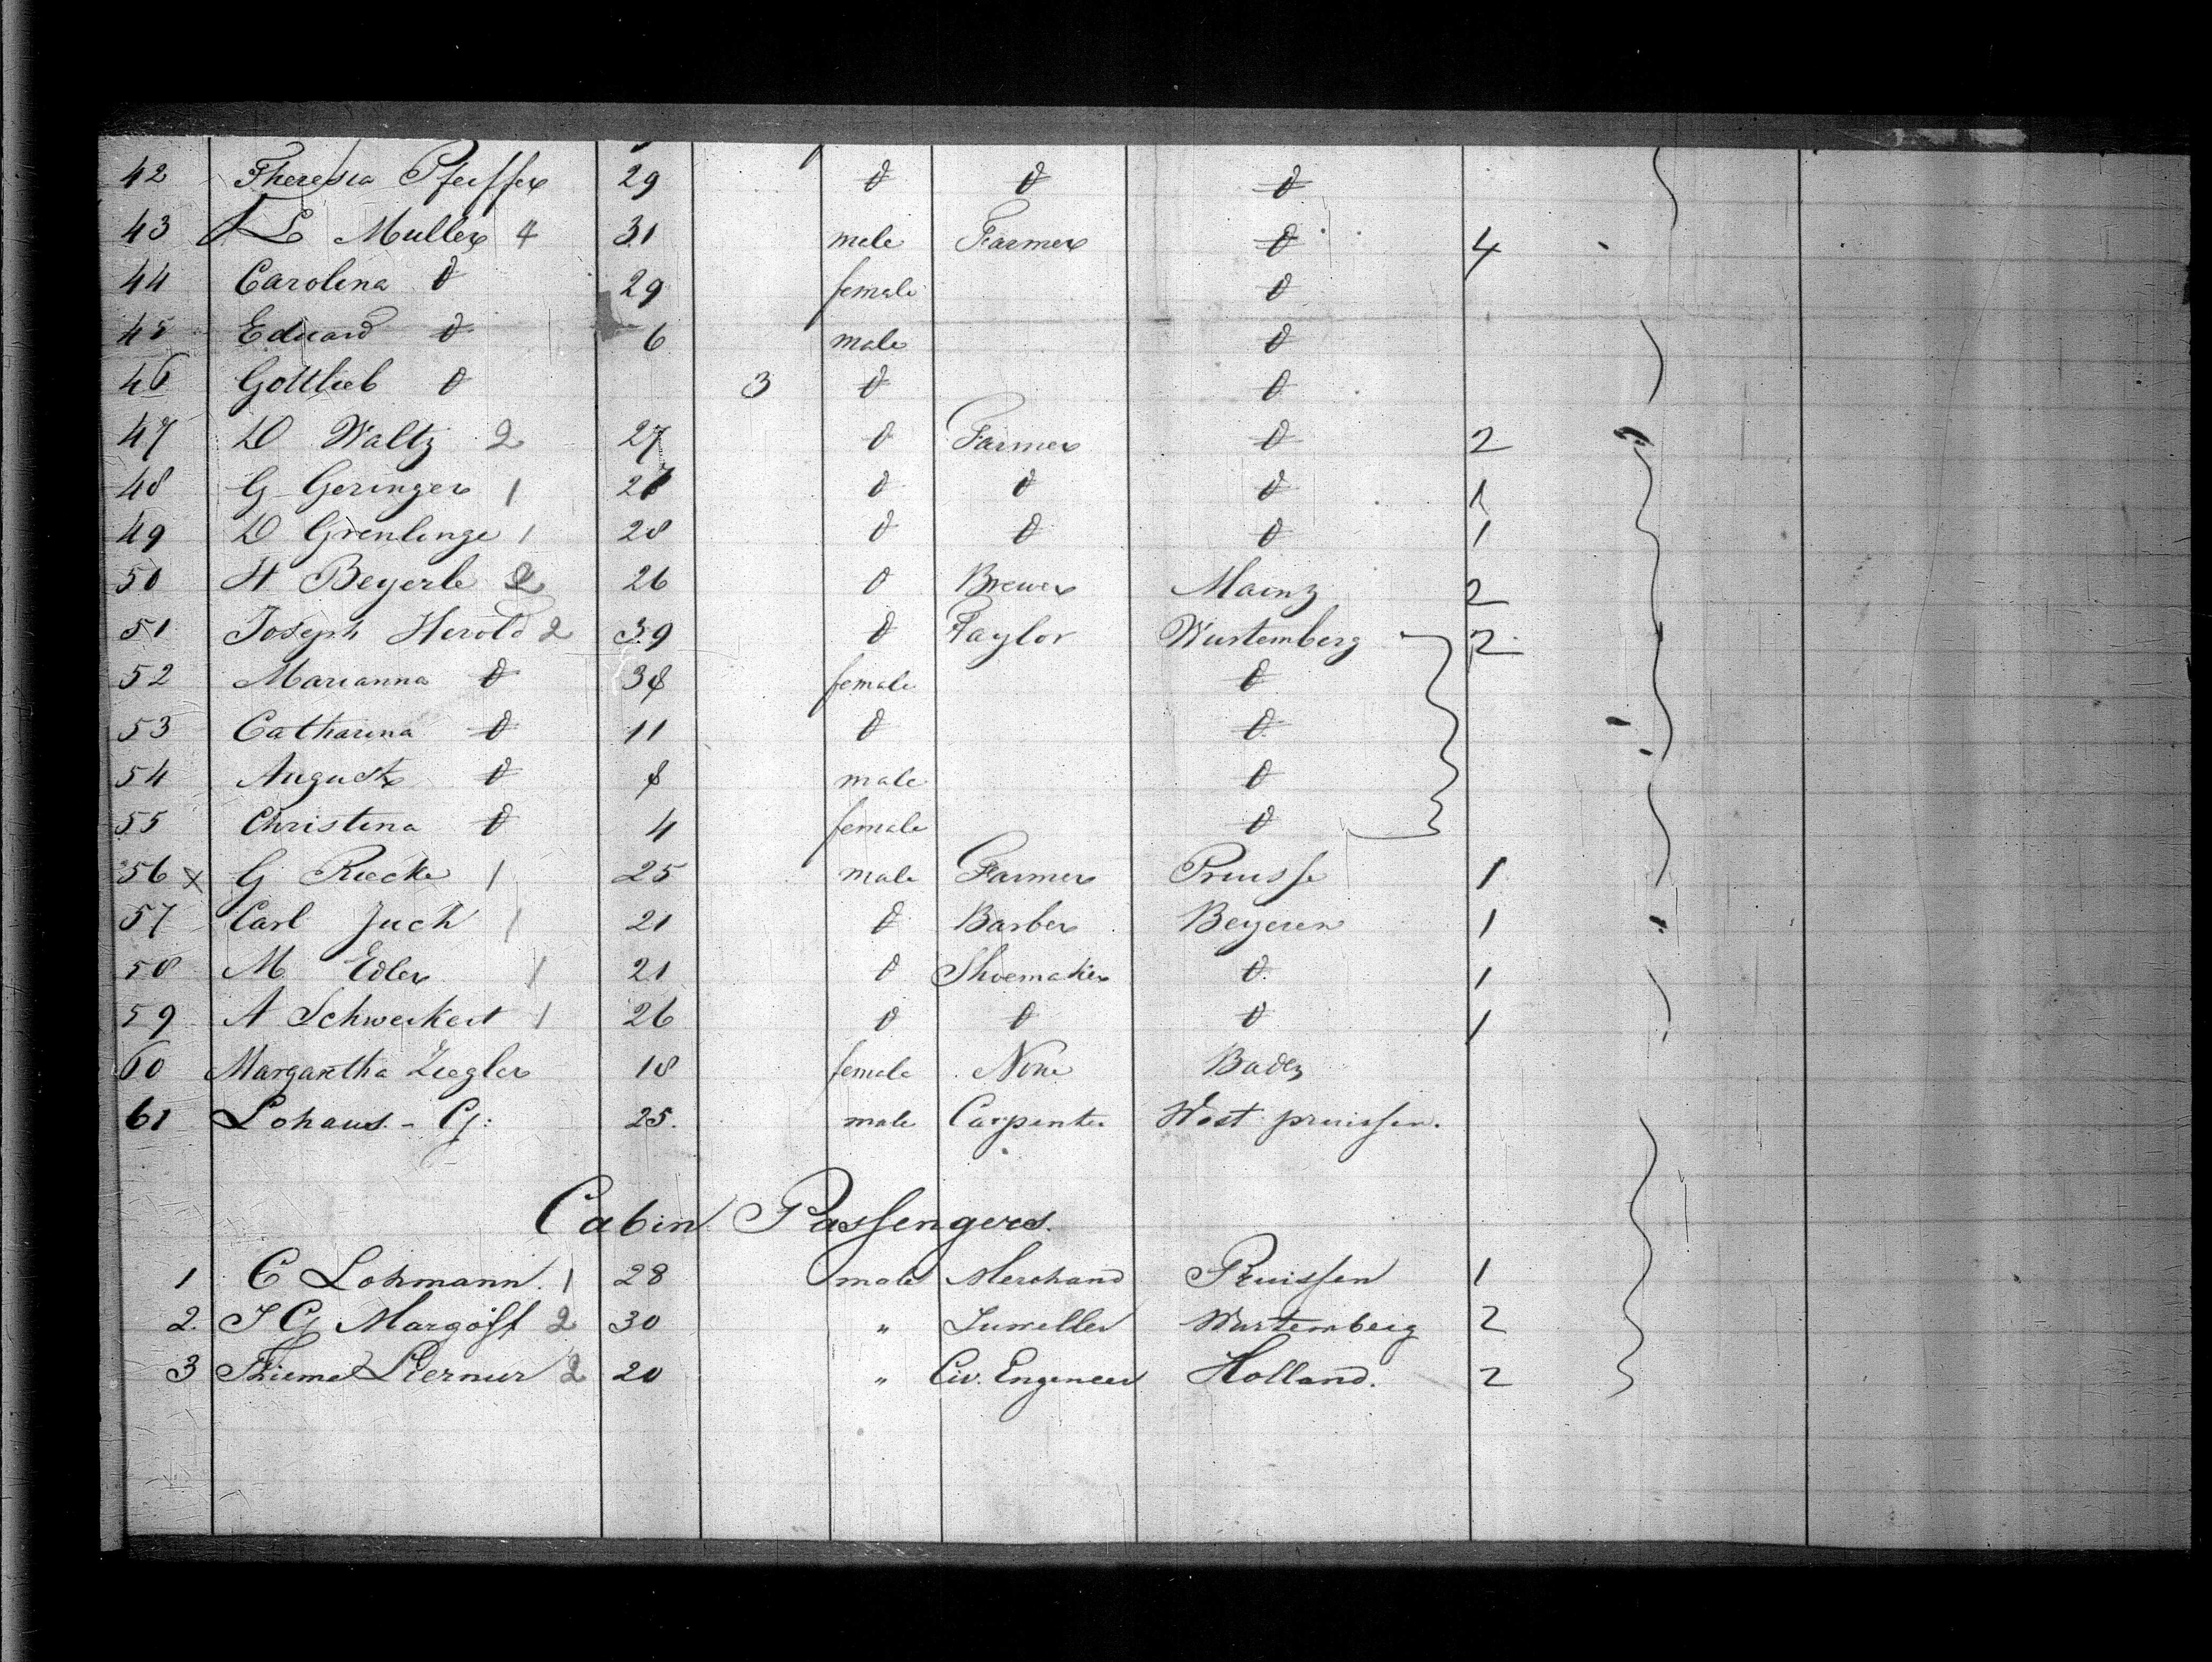 42 Theresia Pfeiffer 29 d d d
43 L Muller 4 31 male Farmer d 4
44 Carolina d 29 female d
45 Eduard d 6 male d
46 Gottlieb d 3 d d
47 D Waltz 2 27 d Farmer d 2
48 G Geringer 1 d d d 1
49 D Grenlinge 1 28 d d d 1
50 H Beyerle 2 26 d Brewer Mainz 2
51 Joseph Herold 2 39 d Taylor Wurtemberg 2
52 Marianna d 38 female d
53 Catharina d 11 d d
54 August d 8 male d
55 Christina d 4 female d
56 x G Riecke 1 25 male Farmer Prusse 1
57 Carl Juch 1 21 d Barber Beyeren 1
58 M Edler 1 21 d Shoemaker d 1
59 A Schweikert 1 26 d d d 1
60 Margaretha Ziegler 18 female None Baden
61 Lohaus - G: 25. male Carpenter West pruissen.
Cabin Passengers.
1 C Lohmann. 1 28 male Merchand Pruissen 1
2. J G Margoff 2 30 " Juweller Wurtemberg 2
3 Thieme Liernur 2 20 " Civ. Engeneer Holland. 2